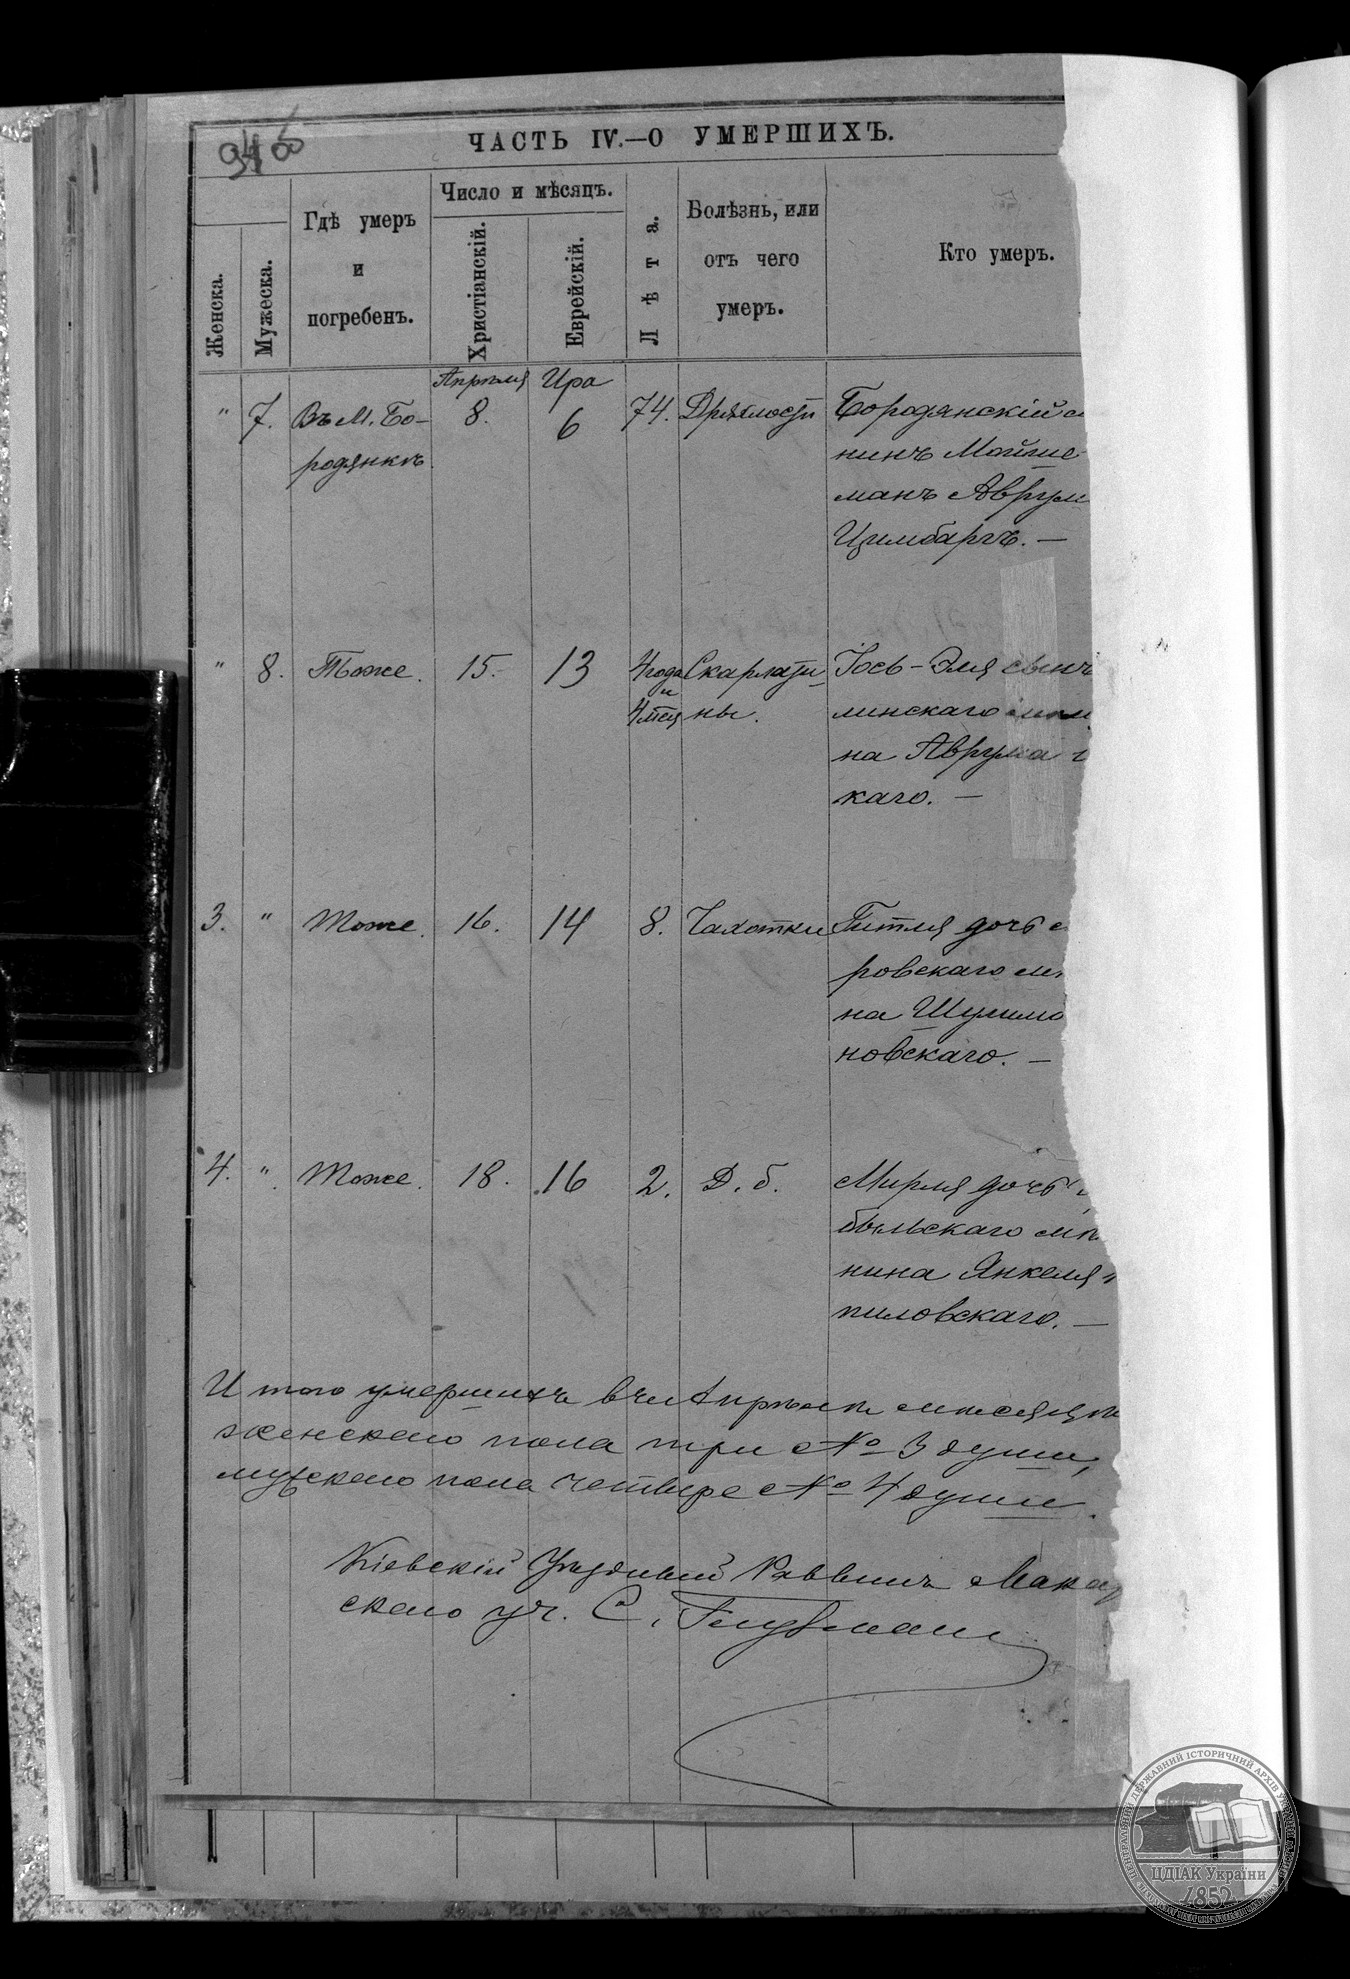 ЧАСТЬ IV.—О УМЕРШИХЪ.
Женска.
Мужеска.
Гдѣ умеръ
и
погребенъ.
Число и мѣсяцъ.
Христіанскій.
Еврейскій.
Лѣта.
Болѣзнь, или
отъ чего
умеръ.
Кто умеръ.
Апрѣля Ира
" 7. Въ М. Бо- 8. 6 74. Дряхлости Бородянскій
родянкѣ нинъ Мойше
манъ Аврум
Цимбаргъ. —
" 8. Тоже. 15. 13 4 года Скарлати- Іось-Эля сынъ
и
4 мѣся ны. линскаго
на Аврума
каго. —
3. " Тоже. 16. 14 8. Чахотки Гитля дочь
ровскаго
на Шулимо
новскаго. —
4. " Тоже. 18. 16 2. Д. б. Мирля дочь
быльскаго мѣ
нина Янкеля
пиловскаго. —
Итого умершихъ въ Апрѣлѣ мѣсяцѣ
женскаго пола три № 3 души,
мужскаго пола четыре № 4 души.
Кіевскій Уѣздный Раввинъ Макар
скаго уч. С.
ЦЕНТРАЛЬНИЙ ДЕРЖАВНИЙ ІСТОРИЧНИЙ АРХІВ УКРАЇНИ
ЦДІАК України
1852